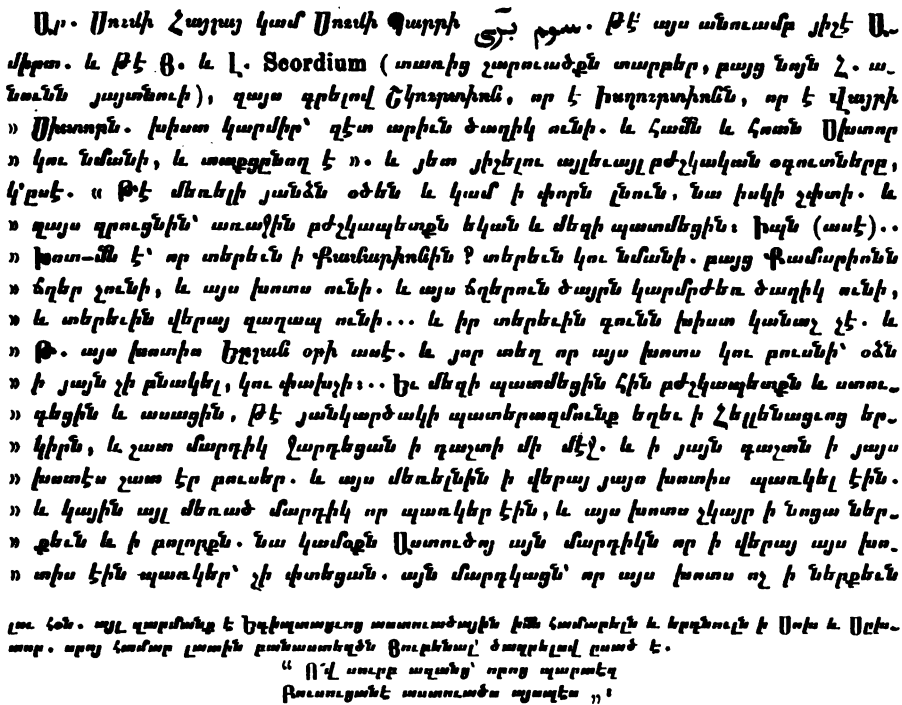 Ար. Սումի Հայլայ կամ Սումի Պարրի سوم بَرّى. Թէ այս անուամբ յիշէ Ա֊
միրտ. և Թէ Յ. և Լ. Scordium (տառից շարուածքն տարբեր, բայց նոյն Հ. ա֊
նունն յայտնուի), զայս գրելով Շկուրտիոն, որ է Խաղուրտիոնն, որ է վայրի
» Սխտորն. խիստ կարմիր՝ զէտ արիւն ծաղիկ ունի. և համն և հոտն Սխտոր
» կու նմանի, և տաքցընող է ». և յետ յիշելու այլեւայլ բժշկական օգուտները,
կ՚ըսէ. « Թէ մեռելի յանձն օծեն և կամ ի փորն լնուն, նա իսկի չփտի. և
» զայս զրուցնին՝ առաջին բժշկապետքն եկան և մեզի պատմեցին։ Իպն (ասէ)..
» Խոտ-մն է՝ որ տերեւն ի Քամարիոնին ? տերեւն կու նմանի. բայց Քամարիոնն
» ճղեր չունի, և այս խոտս ունի. և այս ճղերուն ծայրն կարմրժեռ ծաղիկ ունի,
» և տերեւին վերայ զաղապ ունի... և իր տերեւին գունն խիստ կանաչ չէ. և
» Թ. այս խոտիս Երըշան օթի ասէ. և յոր տեղ որ այս խոտս կու բուսնի՝ օձն
» ի յայն չի բնակել, կու փախչի։.. Եւ մեզի պատմեցին հին բժշկապետքն և ստու֊
» գեցին և ասացին, Թէ յանկարծակի պատերազմունք եղեւ ի Հելլենացւոց եր֊
» կիրն, և շատ մարդիկ ջարդեցան ի դաշտի մի մէջ. և ի յայն դաշտն ի յայս
» խոտէս շատ էր բուսեր. և այս մեռելնին ի վերայ յայս խոտիս պառկել էին.
» և կային այլ մեռած մարդիկ որ պառկեր էին, և այս խոտս չկայր ի նոցա ներ֊
» քեւն և ի բոլորքն. նա կամօքն Աստուծոյ այն մարդիկն որ ի վերայ այս խո֊
» տիս էին պառկեր՝ չի փտեցան. այն մարդկացն՝ որ այս խոտս ոչ ի ներքեւն
լու հօն. այլ զարմանք է Եգիպտացւոց աստուածային իմն համարելն և երդնուլն ի Սոխ և Սըխ֊
տոր. որոյ համար լատին բանաստեղծն Յուբենալ՝ ծաղրելով ըսած է.
“ Ո՜վ սուրբ աղանց՝ որոց պարտէզ
Բուսուցանէ աստուածս այսպէս „։